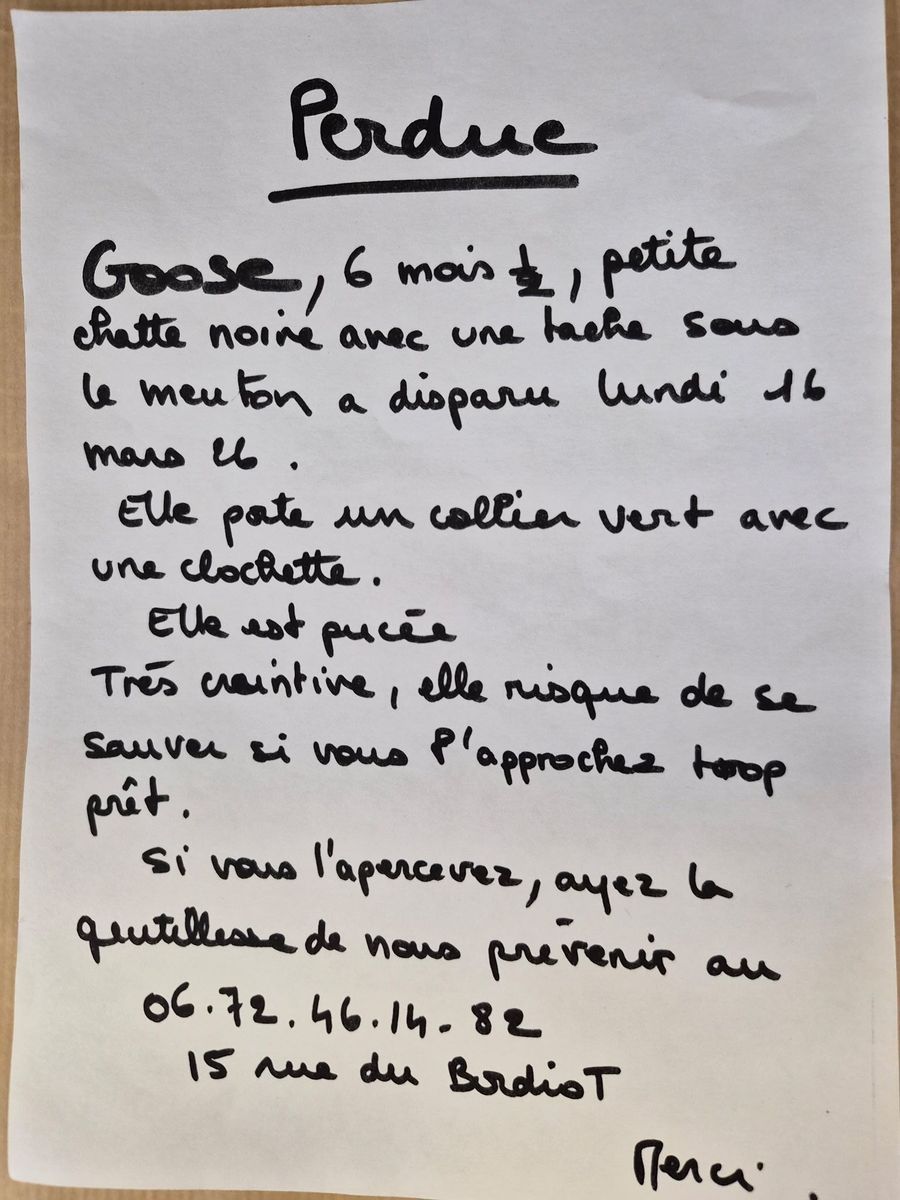 Perdue
Goose, 6 mois ½, petite
chatte noire avec une tache sous
le menton a disparu lundi 16
mars 26.
Elle porte un collier vert avec
une clochette.
Elle est pucée
Très craintive, elle risque de se
sauver si vous l'approchez troop
prêt.
Si vous l'apercevez, ayez la
gentillesse de nous prévenir au
06.72.46.14.82
15 rue du BurdioT
Merci.